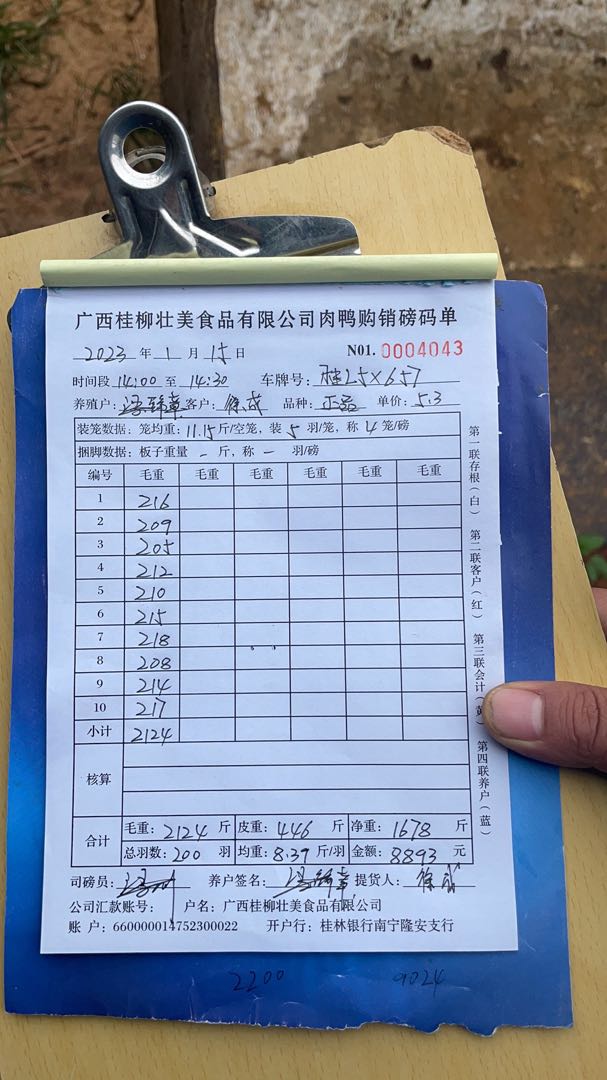 广西桂柳壮美食品有限公司肉鸭购销磅码单
2023 年 1 月 15 日 N01. 0004043
时间段 14:00 至 14:30 车牌号: 桂L5X657
养殖户: 客户: 徐成 品种: 正品 单价: 5.3
装笼数据: 笼均重: 11.15 斤/空笼, 装 5 羽/笼, 称 4 笼/磅
捆脚数据: 板子重量 — 斤, 称 — 羽/磅
编号 毛重 毛重 毛重 毛重 毛重 毛重
1 216
2 209
3 205
4 212
5 210
6 215
7 218
8 208
9 214
10 217
小计 2124
核算
合计 毛重: 2124 斤 皮重: 446 斤 净重: 1678 斤
总羽数: 200 羽 均重: 8.39 斤/羽 金额: 8893 元
司磅员: 养户签名: 提货人: 徐成
公司汇款账号: 户名: 广西桂柳壮美食品有限公司
账 户: 660000014752300022 开户行: 桂林银行南宁隆安支行
第一联存根(白) 第二联客户(红) 第三联会计(黄) 第四联养户(蓝)
2200 9024